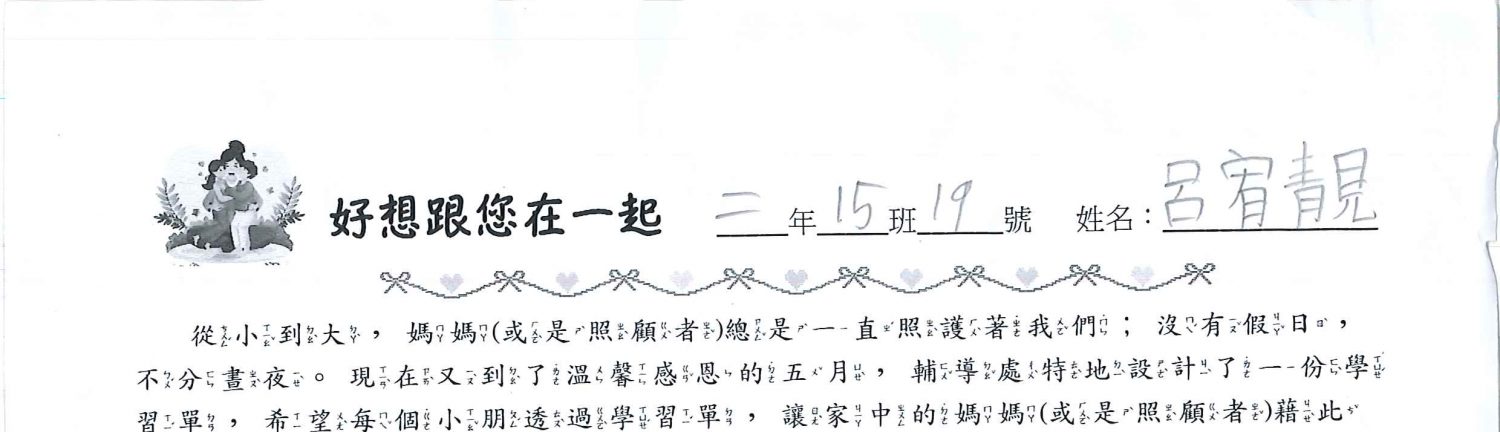 好想跟您在一起 二年15班19號 姓名：呂宥靚
從小到大，媽媽(或是照顧者)總是一直照護著我們；沒有假日，
不分晝夜。現在又到了溫馨感恩的五月，輔導處特地設計了一份學
習單，希望每個小朋透過學習單，讓家中的媽媽(或是照顧者)藉此